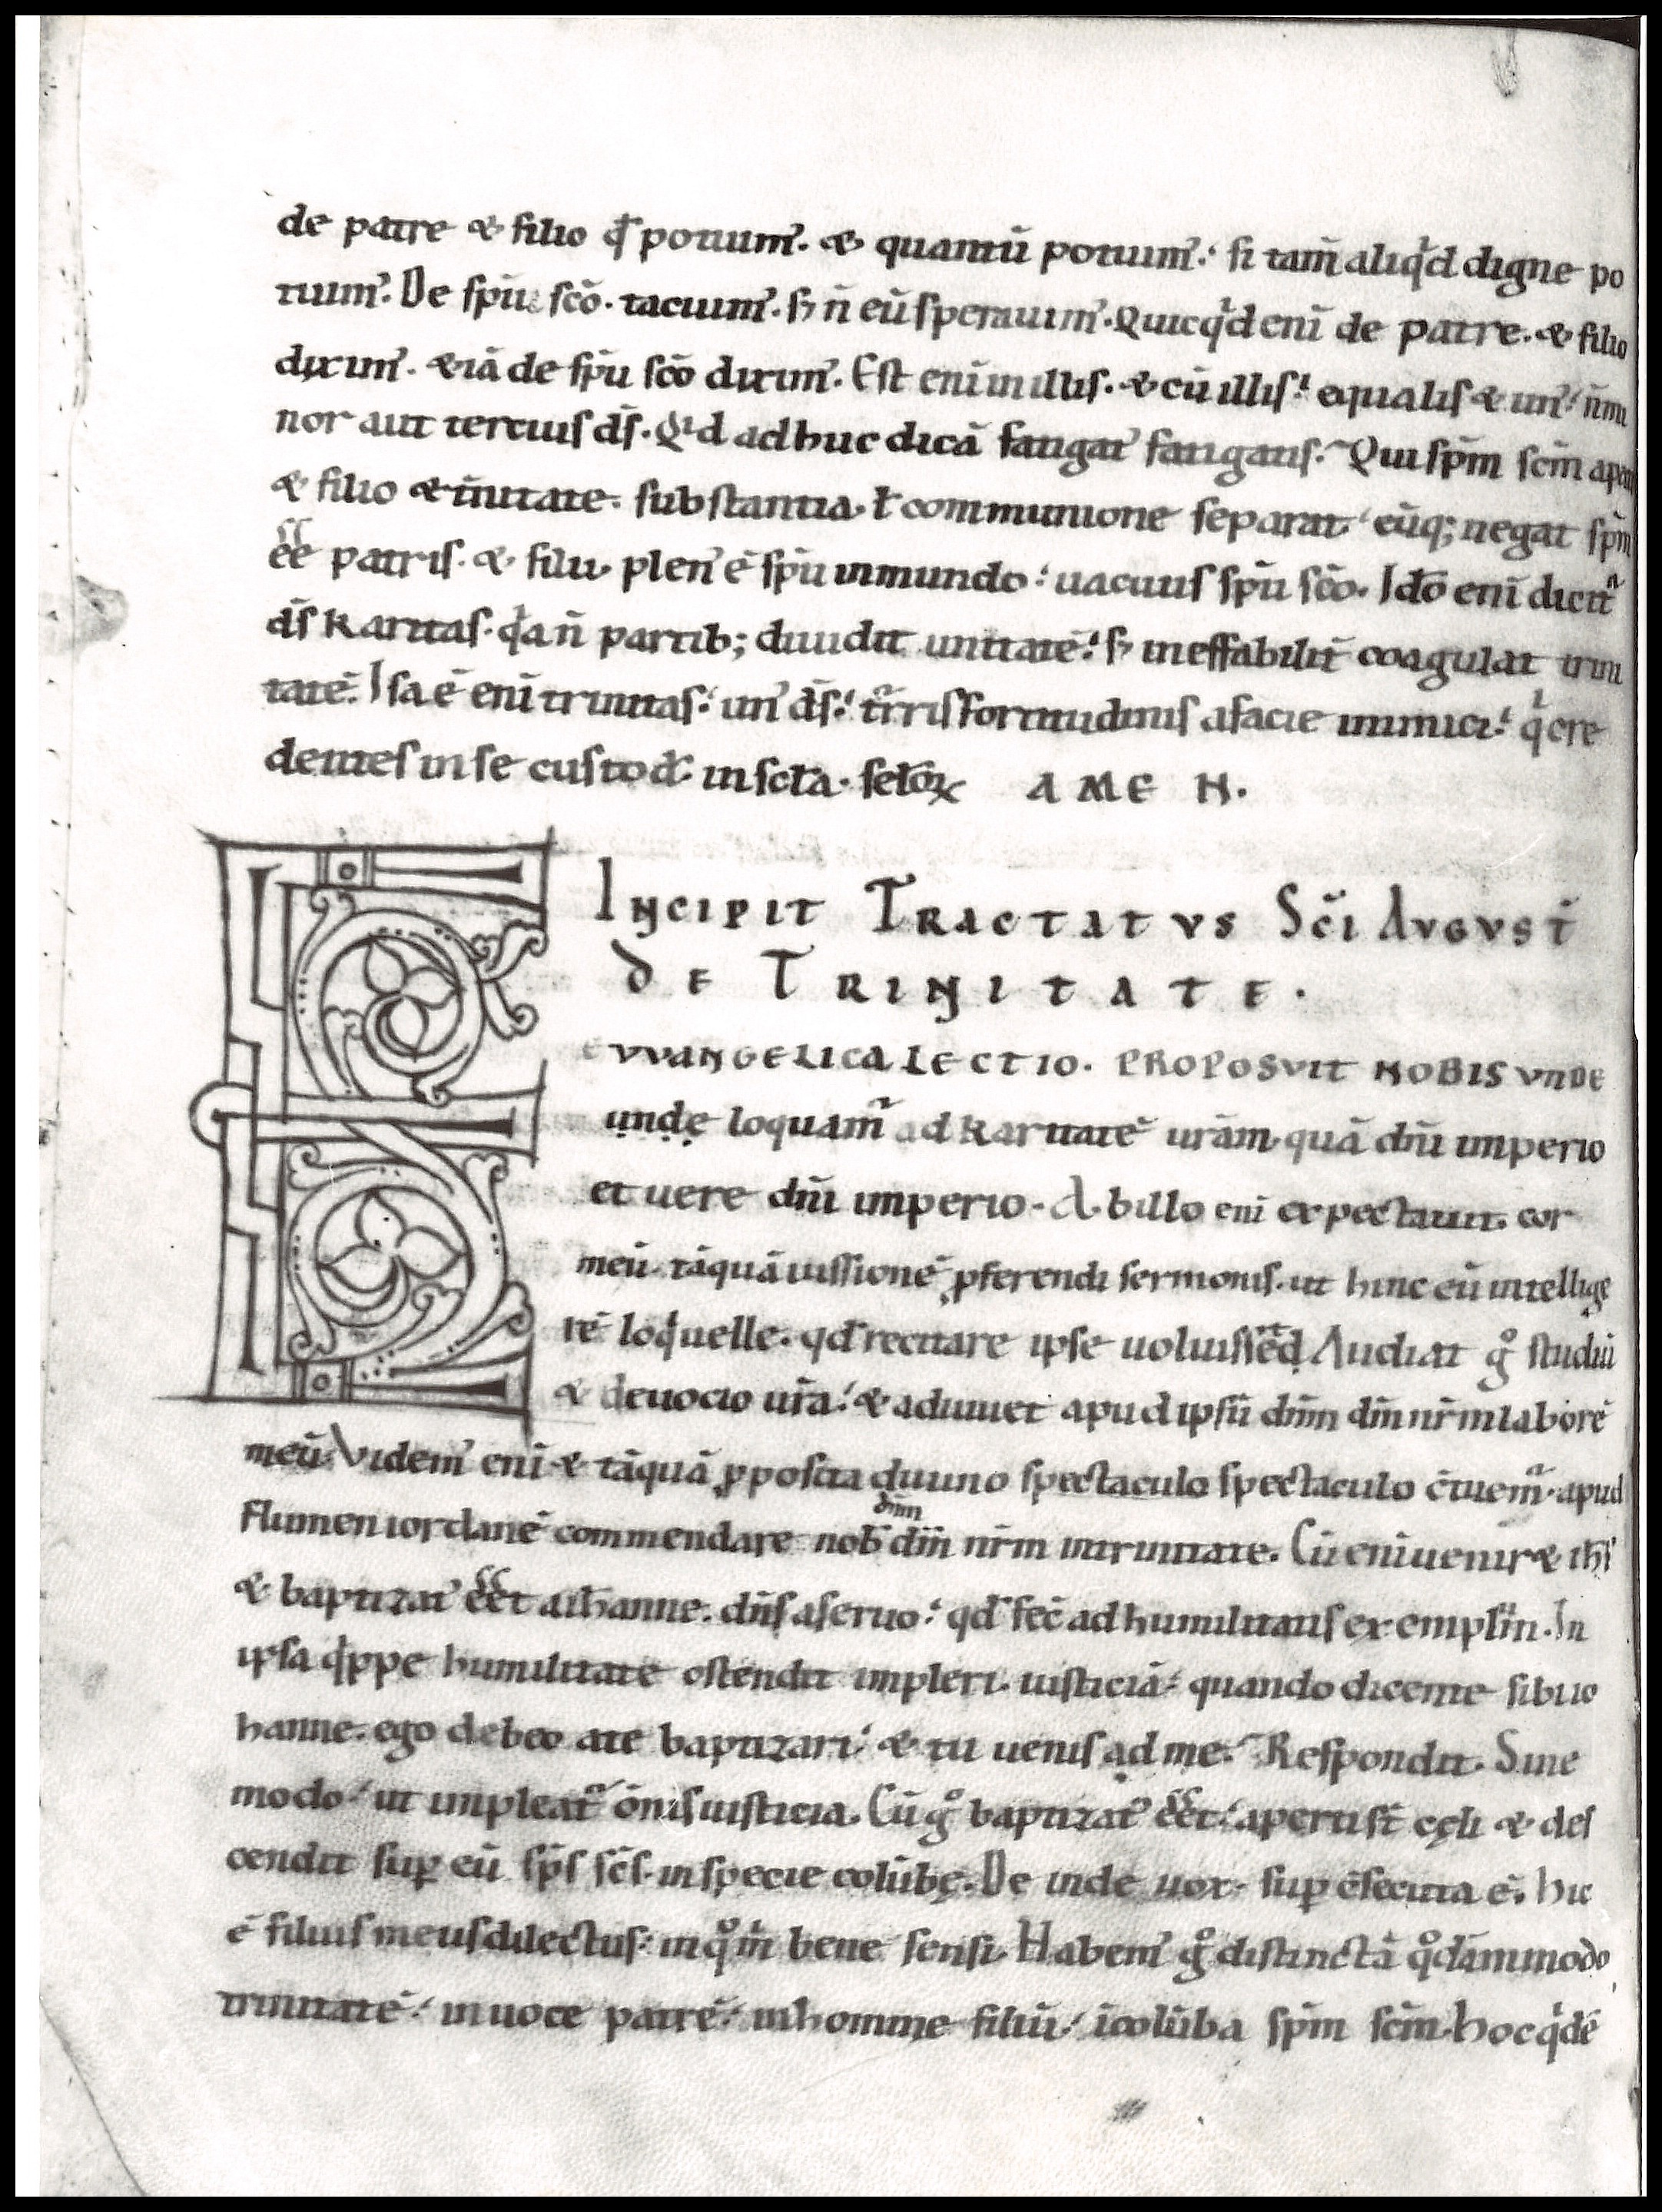 de patre & filio q̃ potuim᾽. & quantū potuim᾽: si tam̄ aliqͥd digne po
tuim᾽. De spū scō. tacuim᾽. sꝫ n̄ eū sperauim᾽. Quicqͥd enī de patre. & filio
dixim᾽. &iā de spū scō dixim᾽. Est enī in illis. & cū illis: equalis & un᾽: n̄ mi
nor aut tercius ds̄. Qͥd adhuc dicā fatigat᾽ fatigans. Qui spm̄ scm̄ a patre
& filio &ͥnitate. substantia. ł communione separat: eūq; negat spm̄
ēē patris. & filii. plen᾽ ē spū inmundo: uacuus spū scō. Idō enī dicit᷑
ds̄ karitas. qͥa n̄ partib; diuidit unitatē: sꝫ ineffabilit̄ coagulat trini
tatē. Isa ē enī trinitas: un᾽ ds̄: t᷑rris fortitudinis a facie inimici: qͥ cre
dentes in se custod̄. in scl̄a. sclōꝝ AMEN.
Incipit Tractatvs Sc̄i Avgvst̄
de Trinitate.
evvangelica lectio. proposvit nobis vnde
unde loquam᷑ ad karitatē urām. quā dnī imperio
et uere dnī imperio. Ab illo enī expectauit. cor
meū. tāquā iussionē ꝓferendi sermonis. ut hinc eū intellige
rē loqͥuelle. qd̄ recitare ipse uoluissed Audiat gͦ studiū
& deuocio ur̄a: & adiuuet apud ipsū dnm̄ dm̄ nr̄m laborē
meū. Videm᾽ enī. & tāquā ꝓposita diuino spectaculo spectaculo c̄tuem᷑. apud
flumen iordanē commendare nob̄ dnm̄ dm̄ nr̄m in trinitate. Cū enī uenir& ih̄s
& baptizat᾽ ēēt a ioh̄anne. dn̄s a seruo: qd̄ fec̄ ad humilitatis exemplū. In
ipsa qͥppe humilitate ostendit impleri. iusticiā: quando dicente sibi io
hanne. ego debeo a te baptizari: & tu uenis ad me. Respondit. Sine
modo: ut impleat᷑ om̄is iusticia. Cū gͦ baptizat᾽ ēēt: aperti st̄ cęli & des
cendit suꝑ eū sp̄s sc̄s. in specie colūbę. De inde uox. suꝑ c̄secuta ē. hic
ē filius meus dilectus: in qͦ m̄ bene sensi. Habem᾽ gͦ distinctā qͦdāmmodo
trinitatē: in uoce patrē: in homine filiū: ī colūba spm̄ scm̄. hoc qͥdē